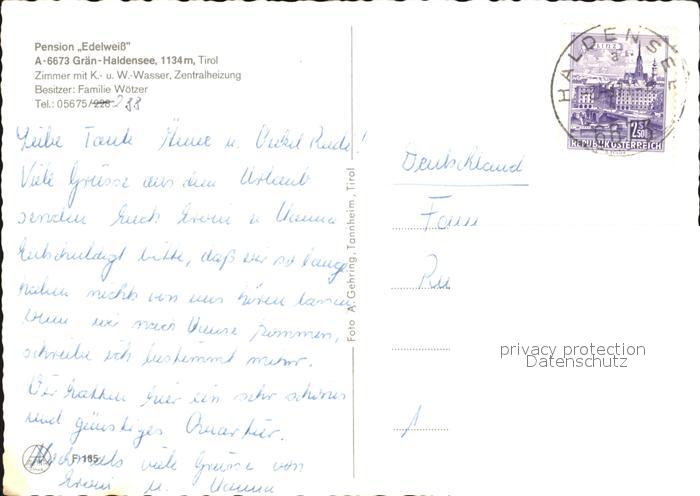 Pension „Edelweiß"
A-6673 Grän-Haldensee, 1134 m, Tirol
Zimmer mit K.- u. W.-Wasser, Zentralheizung
Besitzer: Familie Wötzer
Tel.: 05675/228 288
Liebe Tante Änne u. Onkel Rudi!
Viele Grüsse aus dem Urlaub
senden Euch Erwin u Hanna
Entschuldigt bitte, daß wir so lange
haben nichts von uns hören lassen
Wenn wir nach Hause kommen,
schreibe ich bestimmt mehr.
Wir hatten hier ein sehr schönes
und günstiges Quartier.
Nochmals viele Grüsse von
Erwin u. Hanna
F 185
Foto A. Gehring, Tannheim, Tirol
HALDENSEE
LINZ
2.50
REPUBLIK ÖSTERREICH
Deutschland
Fam
Ru
privacy protection
Datenschutz